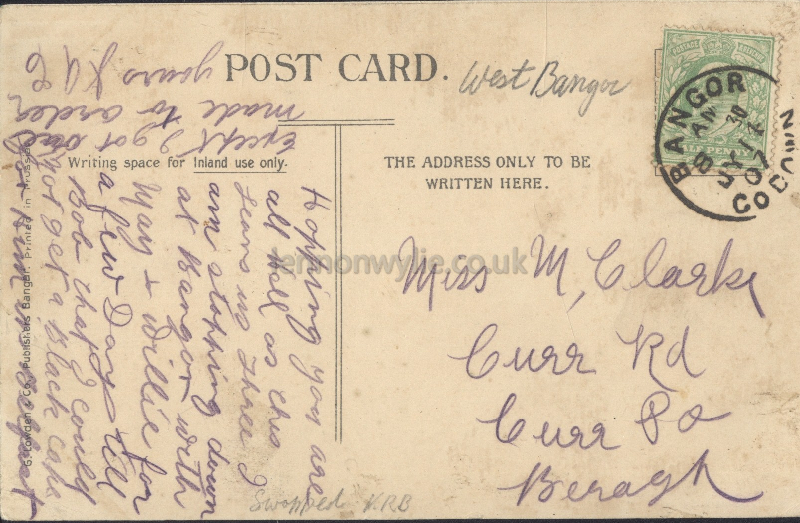 POST CARD.
West Bangor
BANGOR
8 AM
JY 14
07
CO DOWN
POSTAGE
HALF PENNY
Writing space for Inland use only.
THE ADDRESS ONLY TO BE
WRITTEN HERE.
Hopping you are
all Well as this
Leans us three I
am stopping down
at Bangor with
May & Willie for
a few Days tell
Bob that I could
not get a black cane
for him in Belfast
Except I got one
made to order
yours J A C
Miss M, Clarke
Curr Rd
Curr Po
Beragh
G. Lowden & Co., Publishers Bangor. Printed in Prussia.
Swopped V.R.B
lennonwylie.co.uk